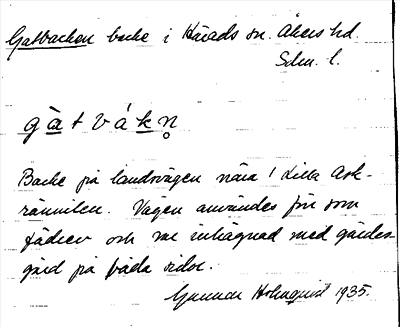 Gatbacken backe i Härads sn. Åkers hd.
Sdm. l.
gàtvákn̥
Backe på landsvägen nära l Lilla Ask-
rännilen. Vägen användes förr som
fädrev och var inhägnad med gärdes-
gård på båda sidor.
Gunnar Holmquist 1935.